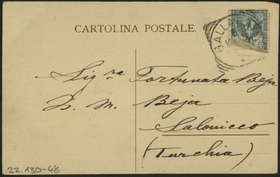 CARTOLINA POSTALE.
GALL
Sig.ra Fortunata Beja
S. M. Beja
Salonicco
(Turchia)
22.130-48